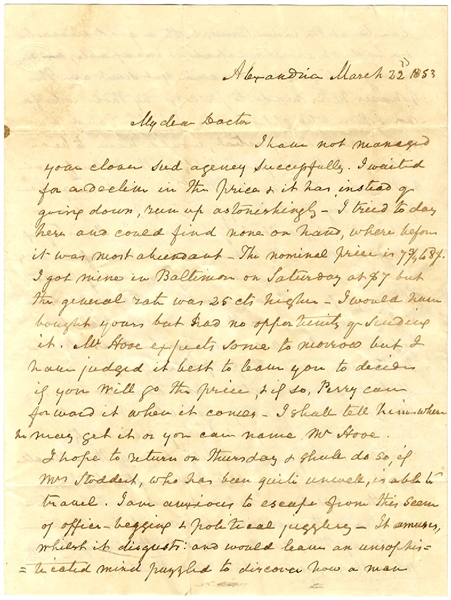 Alexandria March 22d 1853
My dear Doctor
I have not managed
your clover seed agency successfully. I waited
for a decline in the price & it has instead of
going down, run up astonishingly - I tried to day
here and could find none on hand, where before
it was most abundant - The nominal price is
I got mine in Baltimore on Saturday at $7 but
the general rate was 25 cts higher - I would have
bought yours but had no opportunity of sending
it. Mr Hooe expects some to morrow but I
have judged it best to leave you to decide
if you will go the price, & if so, Perry can
forward it when it comes - I shall tell him where
he may get it or you can name Mr Hooe.
I hope to return on Thursday & shall do so, if
Mrs Stoddert, who has been quite unwell, is able to
travel. I am anxious to escape from this scene
of office-begging & political jugglery - It amuses,
whilst it disgusts: and would leave an unsophis=
=ticated mind puzzled to discover how a man